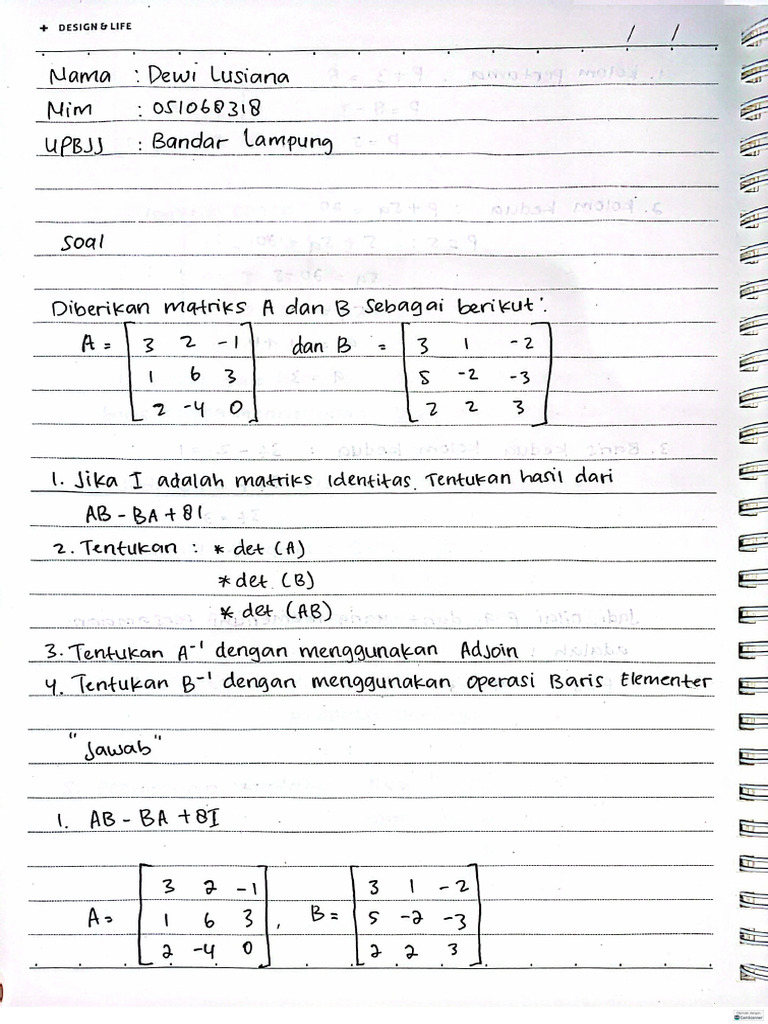 + DESIGN & LIFE
/ /
Nama : Dewi Lusiana
Nim : 051068318
UPBJJ : Bandar Lampung
Soal
Diberikan matriks A dan B Sebagai berikut :
A = [ 3 2 -1 ] dan B = [ 3 1 -2 ]
1 6 3 5 -2 -3
2 -4 0 2 2 3
1. Jika I adalah matriks Identitas. Tentukan hasil dari
AB - BA + 8I
2. Tentukan : * det (A)
* det (B)
* det (AB)
3. Tentukan A⁻¹ dengan menggunakan Adjoin
4. Tentukan B⁻¹ dengan menggunakan operasi Baris Elementer
"Jawab"
1. AB - BA + 8I
A = [ 3 2 -1 ] , B = [ 3 1 -2 ]
1 6 3 5 -2 -3
2 -4 0 2 2 3
CamScanner